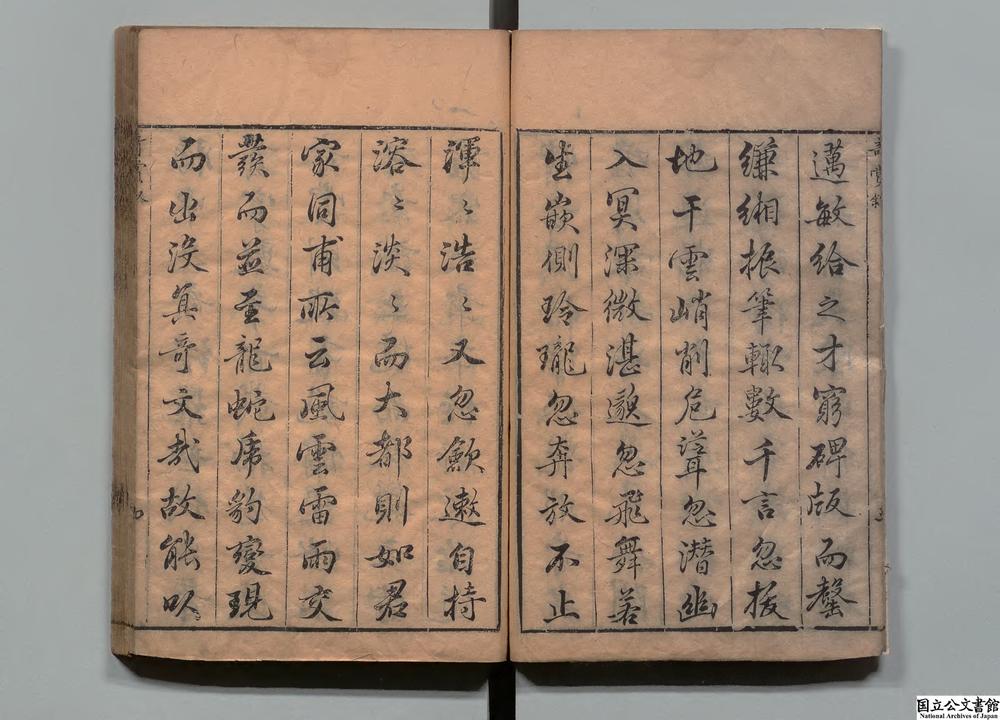 邁敏給之才窮碑版而罄
縑緗振筆輙數千言忽拔
地干雲峭削危聳忽潜幽
入冥深微湛邈忽飛舞若
生嵌側玲瓏忽奔放不止
渾〻浩〻又忽斂遫自持
溶〻淡〻而大都則如君
家同甫所云風雲雷雨交
發而並至龍蛇虎豹變現
而出没眞奇文哉故能以
国立公文書館
National Archives of Japan